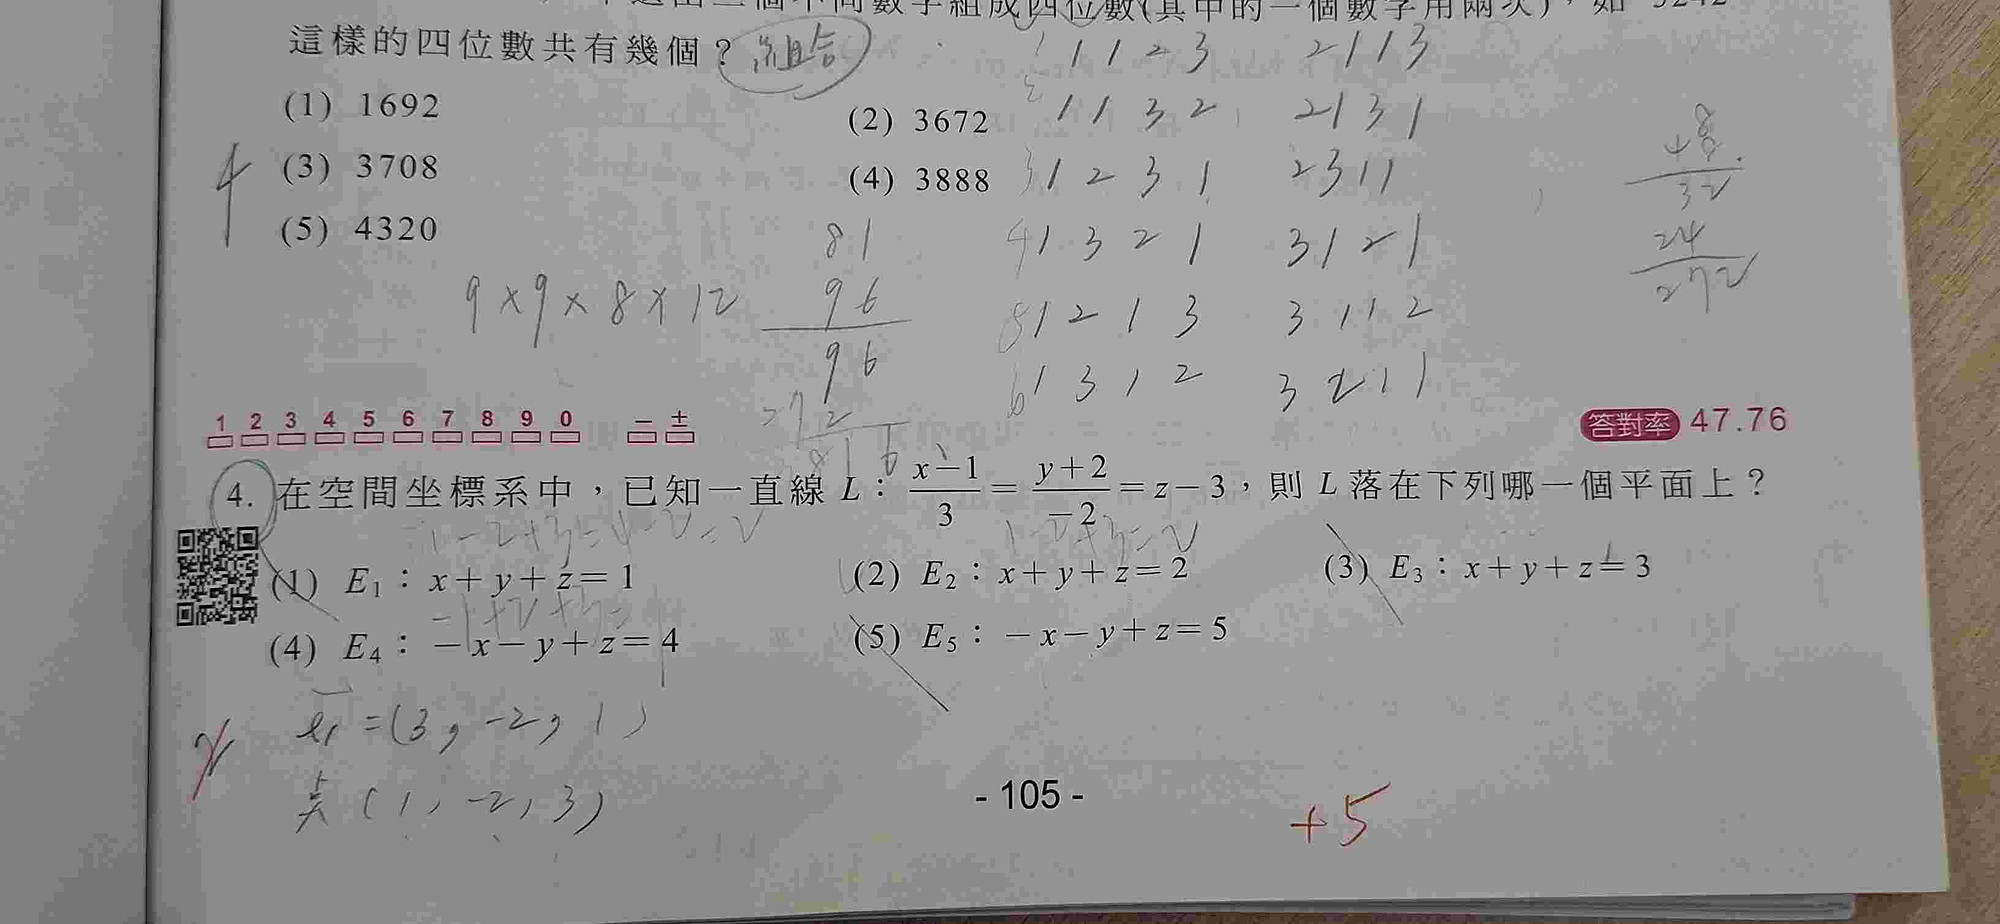 個不同數字組成四位數(其中的一個數字用兩次)，如 5242
這樣的四位數共有幾個？ 組合
(1) 1692
(2) 3672
(3) 3708
(4) 3888
(5) 4320
4
9×9×8×12
81
96
96
72
816
1123 2113
1132 2131
1231 2311
1321 3121
1213 3112
1312 3211
32
24
272
1 2 3 4 5 6 7 8 9 0 － ±
答對率 47.76
4. 在空間坐標系中，已知一直線 L：x－1/3＝y＋2/－2＝z－3，則 L 落在下列哪一個平面上？
1-2+3=2
(1) E₁：x＋y＋z＝1
(2) E₂：x＋y＋z＝2
(3) E₃：x＋y＋z＝3
-1+2+3=
(4) E₄：－x－y＋z＝4
(5) E₅：－x－y＋z＝5
=(3, -2, 1)
(1, -2, 3)
- 105 -
+5